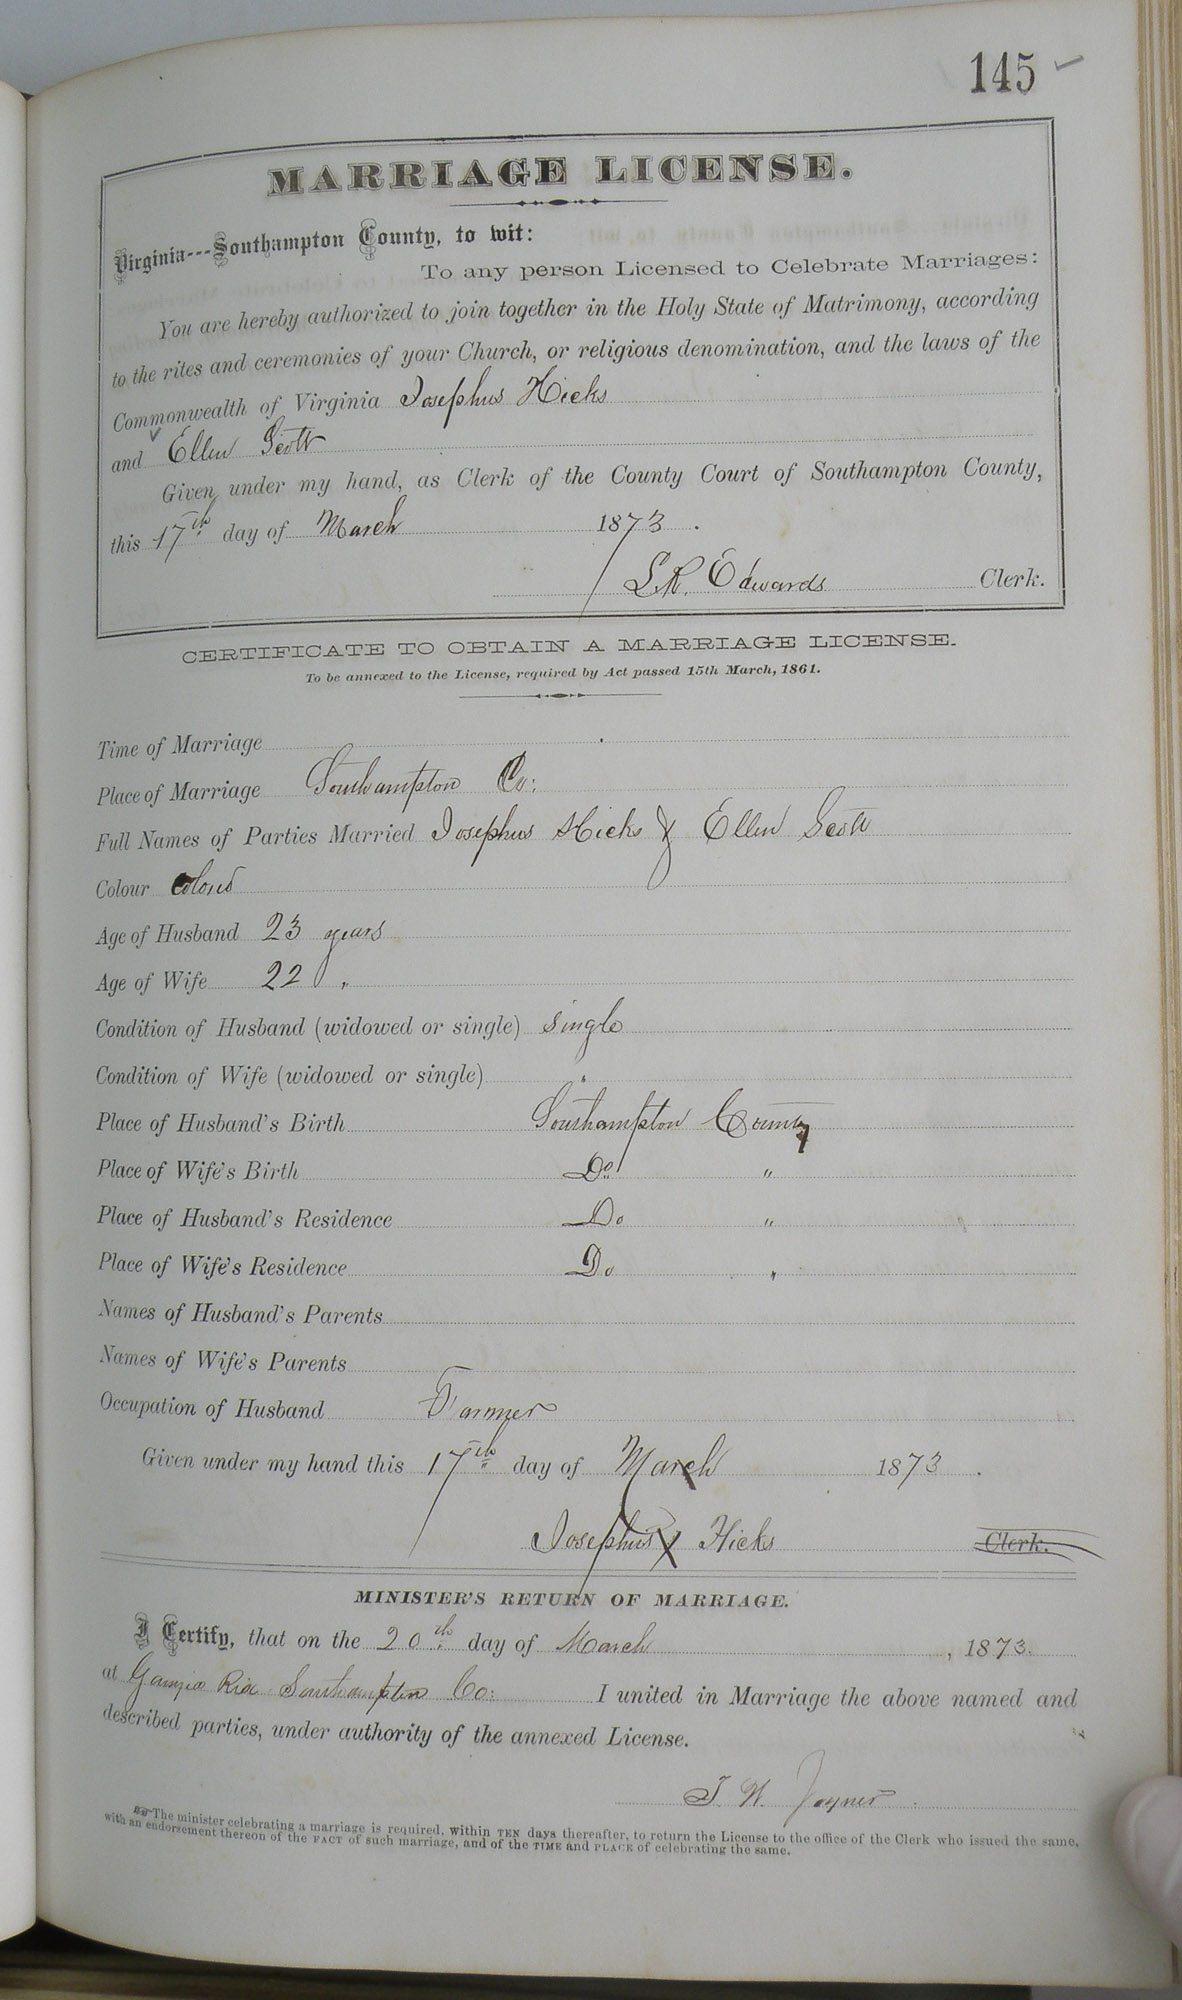 145
MARRIAGE LICENSE.
Virginia---Southampton County, to wit:
To any person Licensed to Celebrate Marriages:
You are hereby authorized to join together in the Holy State of Matrimony, according
to the rites and ceremonies of your Church, or religious denomination, and the laws of the
Commonwealth of Virginia Josephus Hicks
and Ellen Scott
Given under my hand, as Clerk of the County Court of Southampton County,
this 17th day of March 1873.
L.R. Edwards Clerk.
CERTIFICATE TO OBTAIN A MARRIAGE LICENSE.
To be annexed to the License, required by Act passed 15th March, 1861.
Time of Marriage
Place of Marriage Southampton Co:
Full Names of Parties Married Josephus Hicks & Ellen Scott
Colour Colored
Age of Husband 23 years
Age of Wife 22 "
Condition of Husband (widowed or single) single
Condition of Wife (widowed or single) "
Place of Husband's Birth Southampton County
Place of Wife's Birth Do "
Place of Husband's Residence Do "
Place of Wife's Residence Do "
Names of Husband's Parents
Names of Wife's Parents
Occupation of Husband Farmer
Given under my hand this 17th day of March 1873.
Josephus X Hicks Clerk.
MINISTER'S RETURN OF MARRIAGE.
I Certify, that on the 20th day of March, 1873.
at Southampton Co: I united in Marriage the above named and
described parties, under authority of the annexed License.
J. W. Joyner
The minister celebrating a marriage is required, within TEN days thereafter, to return the License to the office of the Clerk who issued the same,
with an endorsement thereon of the FACT of such marriage, and of the TIME and PLACE of celebrating the same.